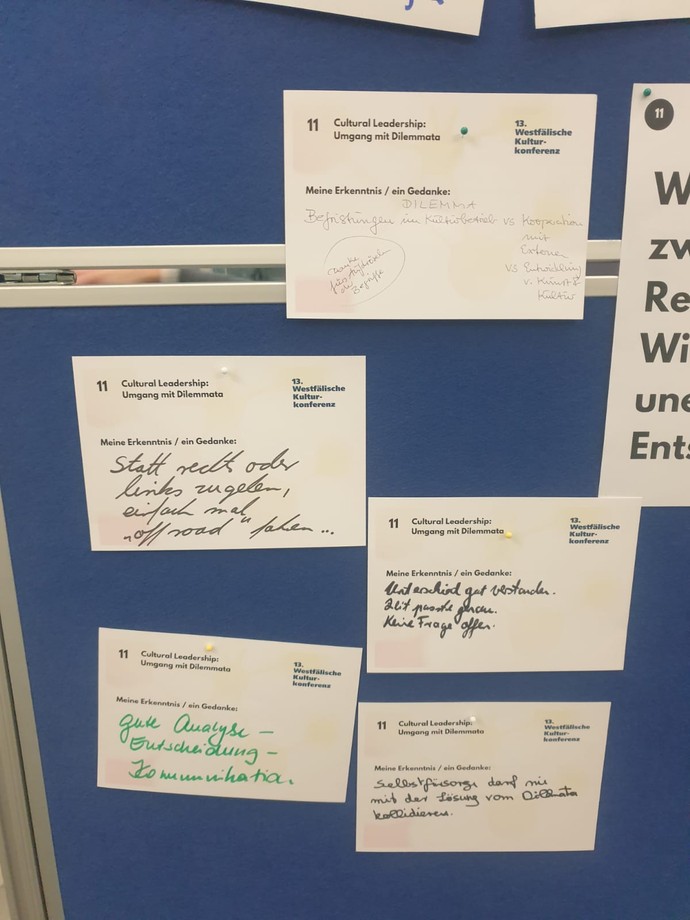 11
Cultural Leadership:
Umgang mit Dilemmata
13.
Westfälische
Kultur-
konferenz
Meine Erkenntnis / ein Gedanke:
DILEMMA
Befristungen im Kulturbetrieb vs Kooperation
mit
Externen
vs Entwicklung
v. Kunst &
Kultur
Danke
für's Aufdröseln
der
Begriffe
11
W
zw
Re
Wi
une
Ents
11
Cultural Leadership:
Umgang mit Dilemmata
13.
Westfälische
Kultur-
konferenz
Meine Erkenntnis / ein Gedanke:
Statt rechts oder
links zugehen,
einfach mal
"off road" fahren...
11
Cultural Leadership:
Umgang mit Dilemmata
13.
Westfälische
Kultur-
konferenz
Meine Erkenntnis / ein Gedanke:
Unterschied gut verstanden.
Zeit passte genau.
Keine Frage offen.
11
Cultural Leadership:
Umgang mit Dilemmata
13.
Westfälische
Kultur-
konferenz
Meine Erkenntnis / ein Gedanke:
gute Analyse –
Entscheidung –
Kommunikation.
11
Cultural Leadership:
Umgang mit Dilemmata
13.
Westfälische
Kultur-
konferenz
Meine Erkenntnis / ein Gedanke:
Selbstfürsorge darf nie
mit der Lösung vom
kollidieren.